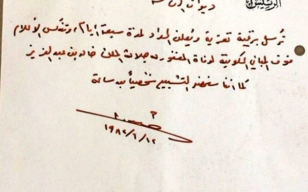 ديوان
ترسل برقية تعزية ويعلن الحداد لمدة سبعة أيام وتنكس الأعلام
فوق المباني الحكومية لوفاة المغفور له جلالة الملك خالد بن عبد العزيز
كما أننا سنحضر للتشييع شخصياً
١٩٨٢/٦/١٣